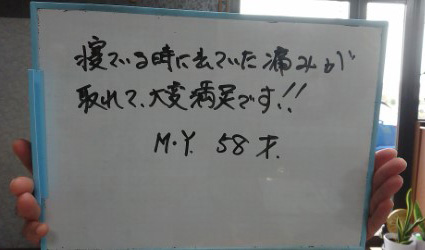 寝ている時に出ていた痛みが
取れて、大変満足です!!
M.Y. 58才.